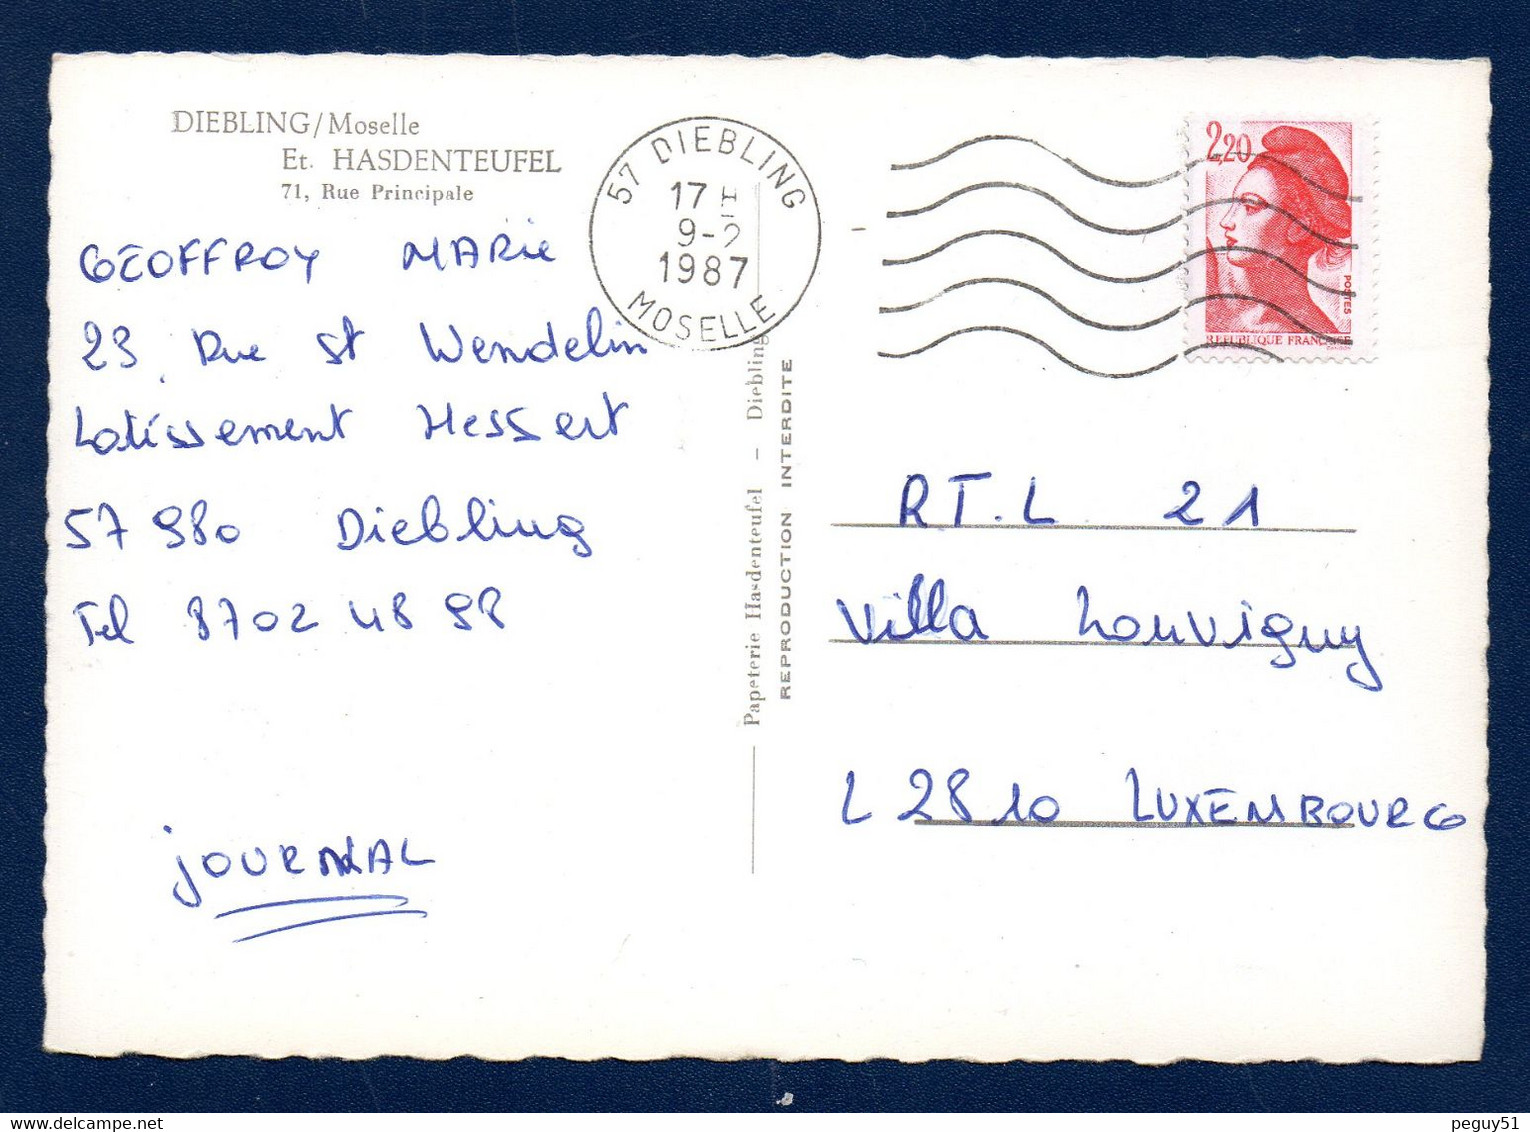 DIEBLING/Moselle
Et. HASDENTEUFEL
71, Rue Principale
GEOFFROY MARie
23, Rue St Wendelin
Lotissement Hessert
57 980 Diebling
Tel 8702 48 98
JOURNAL
57 DIEBLING
17 H
9-2
1987
MOSELLE
Papeterie Hasdenteufel – Diebling
REPRODUCTION INTERDITE
2,20
POSTES
REPUBLIQUE FRANÇAISE
GANDON
R.T.L 21
Villa Louvigny
L 2810 LUXEMBOURG
peguy51